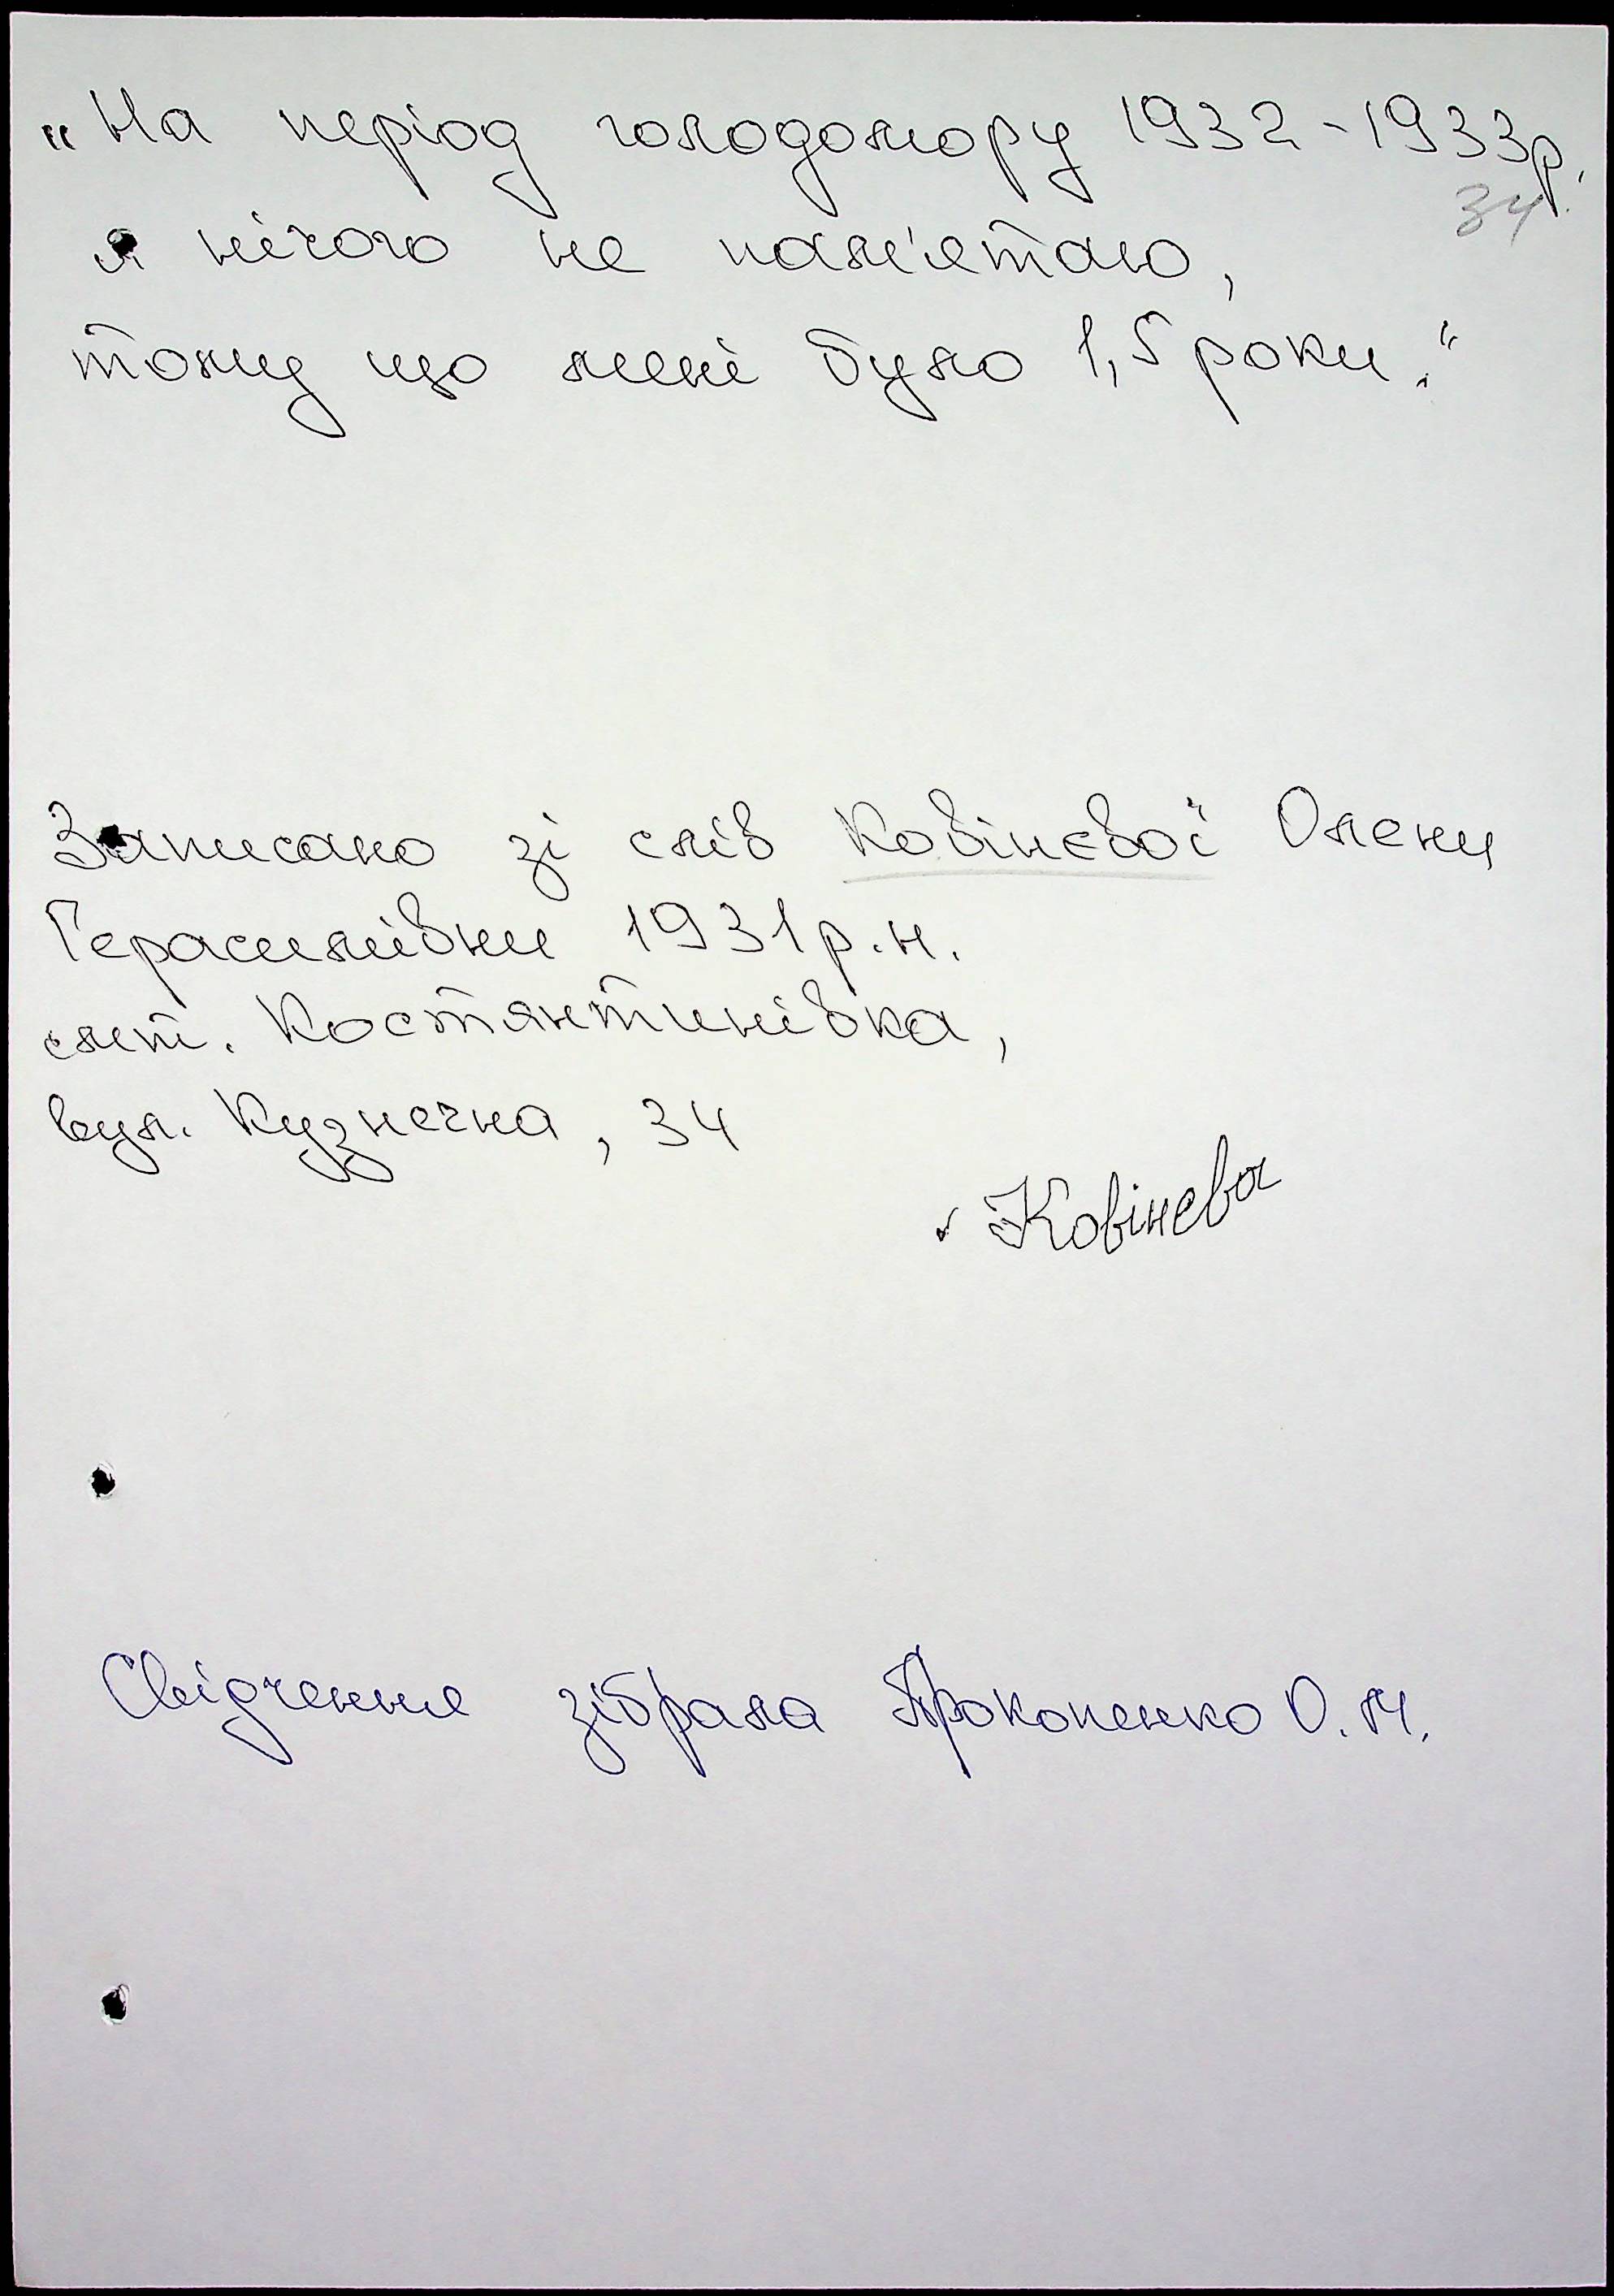 "На період голодомору 1932-1933р.
34
я нічого не пам'ятаю,
тому що мені було 1,5 роки."
Записано зі слів Ковінєвої Олени
Герасимівни 1931р.н.
смт. Костянтинівка,
вул. Кузнечна, 34
Ковінева
Свідчення зібрала Прокопенко О.М.